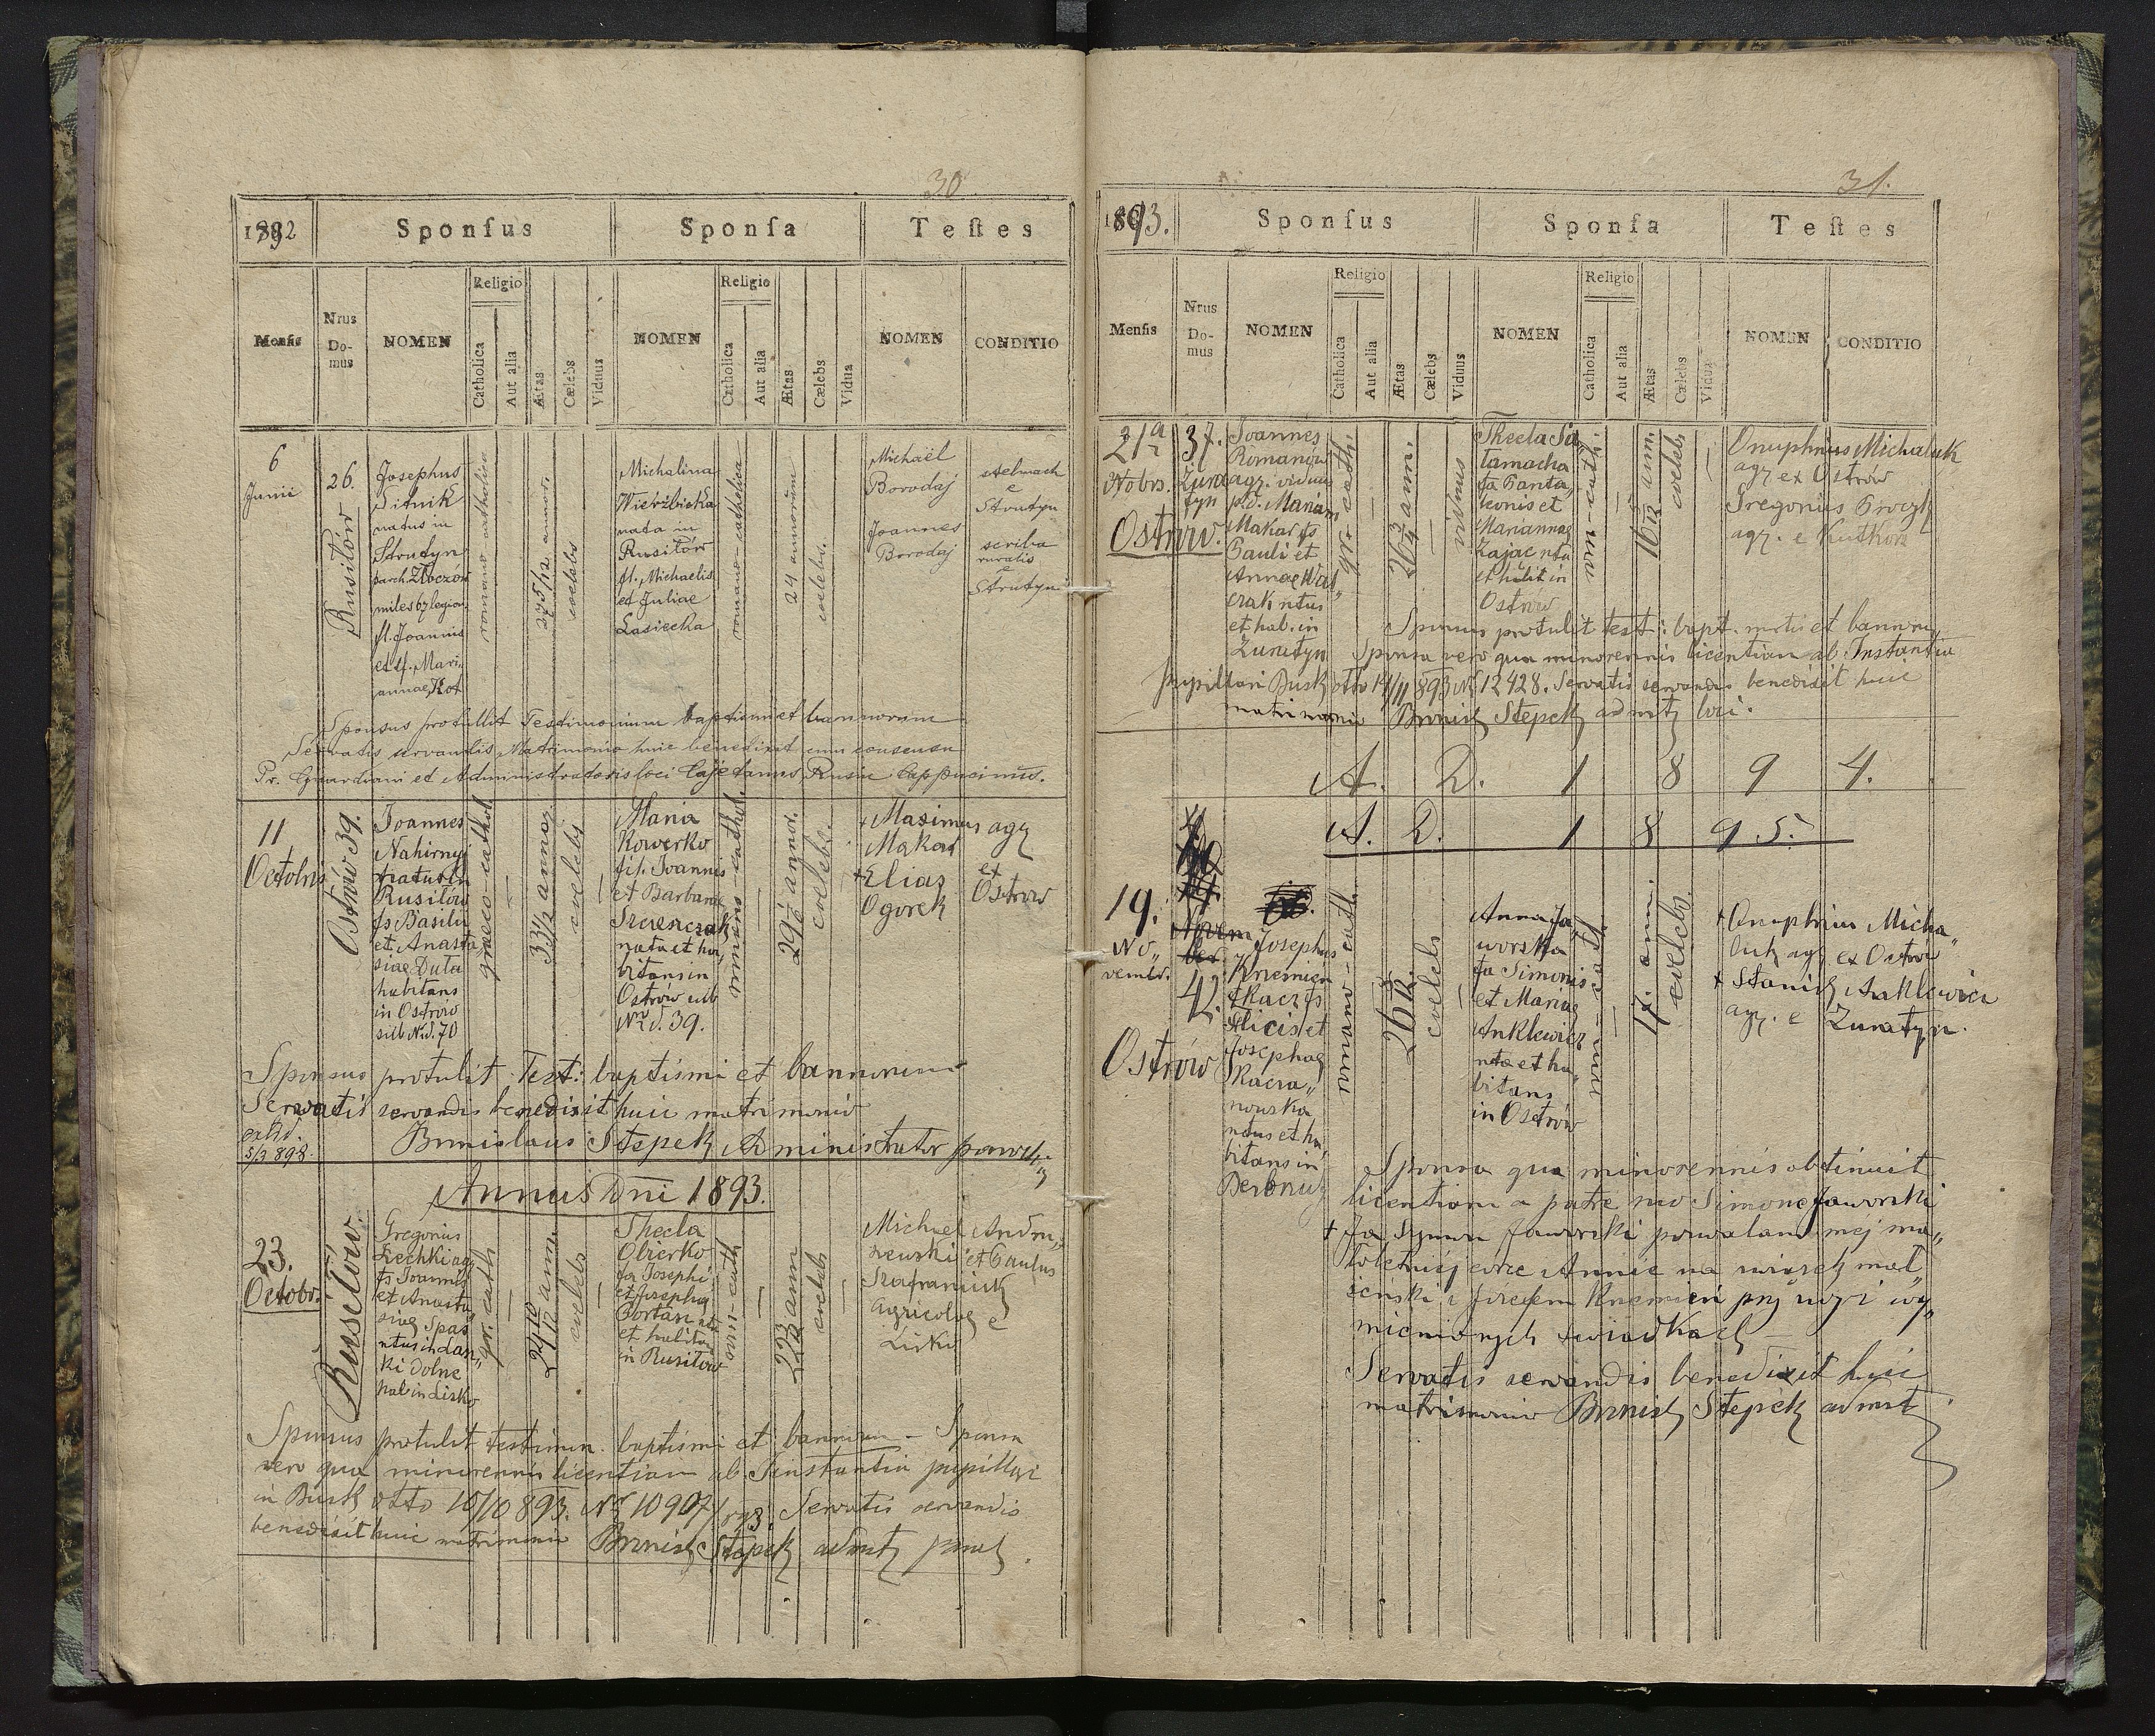 30
1892 Sponsus Sponsa Testes
Mensis Nrus Domus NOMEN Religio Catholica Aut alia Ætas Cælebs Viduus NOMEN Religio Catholica Aut alia Ætas Cælebs Vidua NOMEN CONDITIO
6
Junii
26.
Rusilów
Josephus
Sitnik
natus in
Strutyn
parch. Złoczów
miles 67 legion.
fl. Joannis
et Mari
annae Kot
romano-catholica
27 5/12 annor.
coelebs
Michalina
Wierzbicka
nata in
Rusilów
fl. Michaelis
et Juliae
Lasiecka
romano-catholica
24 annorum
coelebs.
Michaël
Borodaj
Joannes
Borodaj
stelmach
e
Strutyn
scriba
ruralis
e
Strutyn
Sponsus protullit Testimonium baptismi et bannorum
Servatis servandis Matrimonio huic benedixit cum consensu
Pr. Guardiani et Administratoris loci Cajetanus Rusin Cappucinus.
11
Octobris
Ostrów 39.
Joannes
Nahirnyj
natus in
Rusilów
fs Basilii
et Anasta
siae Duta
habitans
in Ostrów
sub N.d. 70
graeco-cathol.
33 1/2 annor.
coelebs
Maria
Kowerko
fil. Joannis
et Barbarae
nata et ha„
bitans in
Ostrów sub
Nr d. 39.
romano-cathol.
29 1/2 annor.
coelebs.
+ Maximus agr
Makar
+ Elias ex
Ogorek Ostrów
Sponsus protulit Test: baptismi et bannorum
Servatis servandis benedixit huic matrimonio
extrd.
5/3 898.
Bronislaus Stepek Administrator paroch
Annus Dni 1893.
23.
Octobr.
Rusilów.
Gregorius
Zechki agr
fs Joannis
et Anasta
siae Spas
ntus in Łan„
ki dolne
hab in Lisko
gr. cath
24 10/12 ann.
coelebs
Thecla
Olierko
fa Josephi
et Josepha
Bortan nta
et habita
in Rusilów
rom-cath
22 3/12 ann
coelebs
Michael Andru„
szewski et Paulus
Szafraniuk
agricolae e
Lisko
Sponsus protulit testimon. baptismi et bannorum – Sponsa
vero qua minorennis licentiam ab Instantia pupillari
in Busk dtto 10/10 893. N 10907/893. Servatis servandis
benedixit huic matrimonio Bronisl Stepek admstr paroch.
31.
1893. Sponsus Sponsa Testes
Mensis Nrus Domus NOMEN Religio Catholica Aut alia Ætas Cælebs Viduus NOMEN Religio Catholica Aut alia Ætas Cælebs Vidua NOMEN CONDITIO
21a
Ostrów.
37.
Żura
tyn
Joannes
Romanów
agr. viduus
p.d. Mariam
Makar fs
Pauli et
Annae Wal„
czak ntus
et hab. in
Żuratyn
gr.-cath.
36 3/4 ann.
viduus
Thecla Sa„
łamacha
fa Panta„
leonis et
Mariannae
Zając nta
et habit in
Ostrów
rom-cath.
16 5/12 ann.
coelebs
Onuphrius Michaluk
agr ex Ostrów
Gregorius
agr. e Kutkorz
Sponsus protulit test: bapt. mortis et bannoru„
Sponsa vero qua minorennis licentiam ab Instantia
pupillari Busk dtto 14/11 893 N 12428. Servatis servandis benedixit huic
matrimonio Bronisl Stepek admstr loci.
A. D. 1 8 9 4.
A. D. 1 8 9 5.
19.
No„
vembr.
Ostrów
42.
Josephus
Krzemień
Felicis et
Josephae
Kacza„
nowska
ntus et ha„
bitans in
Derewnia
romano-cath
26 8/12
coelebs
Anna Ja„
worska
fa Simonis
et Mariae
Anklewicz
nta et ha„
bitans
in Ostrów
rom-cath
17. ann.
coelebs.
+ Onuphrius Micha„
luk agr ex Ostrów
+ Stanisl Anklewicz
agr. e Żuratyn.
Sponsa qua minorennis obtinuit
licentiam a patre suo Simone Jaworski
+ Ja Symon Jaworski pozwalam mej ma„
łoletniej córce Annie na związek mał„
żeński z Józefem Krzemień przy wyż wy„
mienionych świadkach –
Servatis servandis benedixit huic
matrimonio Bronisl Stepek admstr